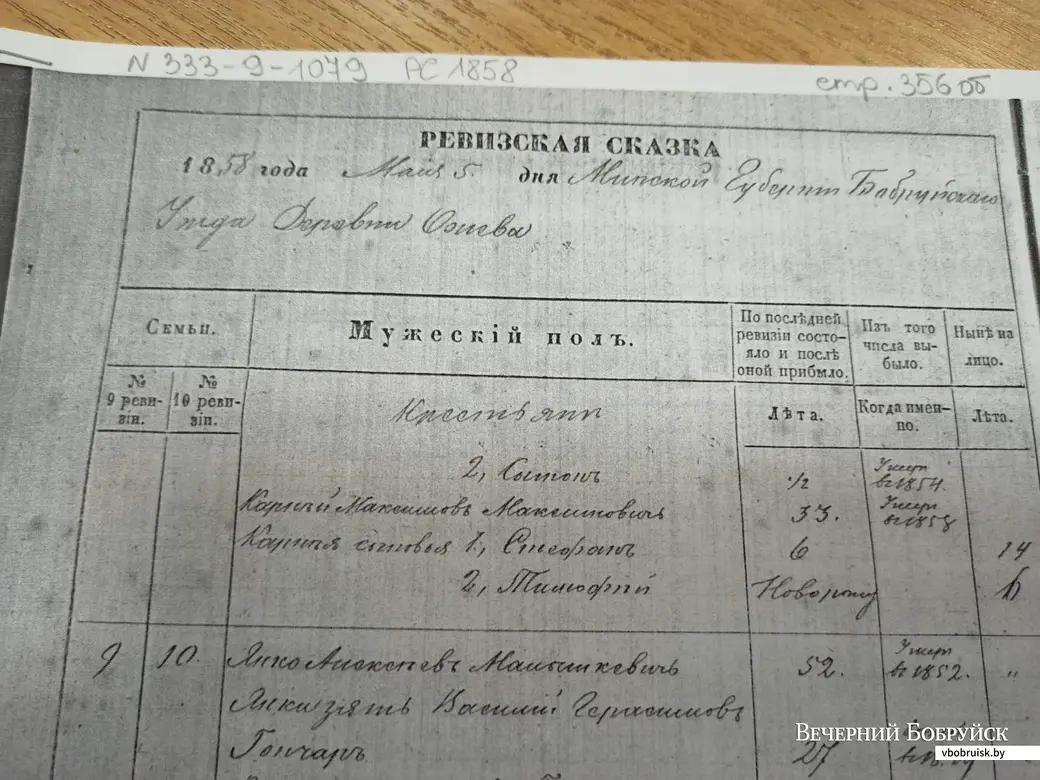 N 333-9-1079 РС 1858
стр. 356 об
РЕВИЗСКАЯ СКАЗКА
1858 года Мая 5. дня Минской Губернии Бобруйскаго
Уезда Деревни
Семьи.
Мужескій полъ.
По послѣдней ревизіи состо-
яло и послѣ
оной прибыло.
Изъ того
числа вы-
было.
Нынѣ на
лицо.
№
9 реви-
зіи.
№
10 реви-
зіи.
Крестьяне
Лѣта.
Когда имен-
но.
Лѣта.
2, Сымонъ 1/2 Умеръ
въ 1854.
Карней Максимовъ Максимовичъ 33. Умеръ
въ 1858
Карнея сыновья 1, Стефанъ 6 14
2, Тимофей Новорож 6
9 10. Янко Алексеевъ Малышкевичъ 52. Умеръ
въ 1852. "
Янки зять Василий Герасимовъ
Гончаръ 27
ВЕЧЕРНИЙ БОБРУЙСК
vbobruisk.by